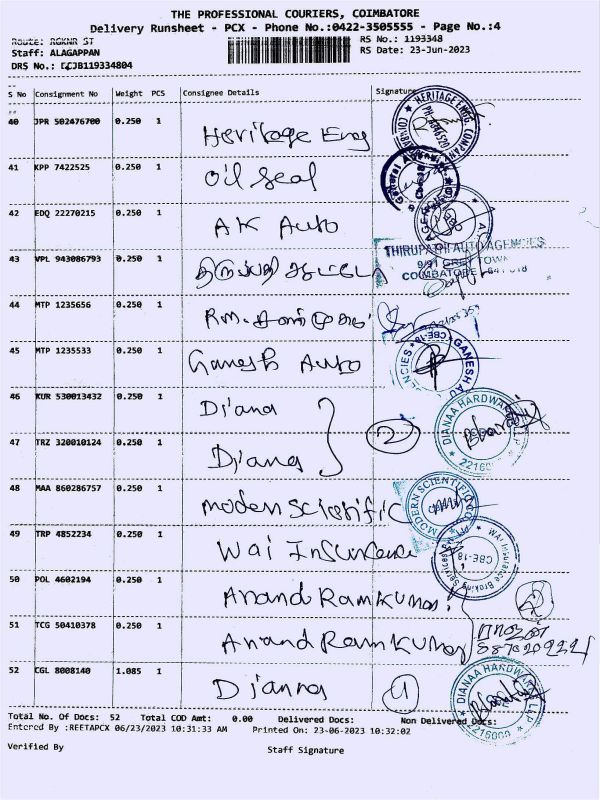 THE PROFESSIONAL COURIERS, COIMBATORE
Delivery Runsheet - PCX - Phone No.:0422-3505555 - Page No.:4
Route: RGKNR ST
RS No.: 1193348
Staff: ALAGAPPAN
RS Date: 23-Jun-2023
DRS No.: CCJB119334804
S No Consignment No Weight PCS Consignee Details Signature
40 JPR 502476700 0.250 1 Heritage Eng
HERITAGE ENGG. COMPANY
41 KPP 7422525 0.250 1 Oil Seal
42 EDQ 22270215 0.250 1 AK Auto
43 VPL 943086793 0.250 1 திருப்பதி
THIRUPATHI AUTO AGENCIES
COIMBATORE
44 MTP 1235656 0.250 1 RM.
45 MTP 1235533 0.250 1 Ganesh Auto
CBE-18 GANESH AU
46 KUR 530013432 0.250 1 Diana
2
DIANAA HARDWARE LLP
47 TRZ 320010124 0.250 1 Diana
48 MAA 860286757 0.250 1 Modern Scientific
MODERN SCIENTIFIC CO.
49 TRP 4852234 0.250 1 Wai Insurance
Wai Insurance Broking Services
CBE-18
50 POL 4602194 0.250 1 Anand Ramkumar
2
51 TCG 50410378 0.250 1 Anand Ramkumar
52 CGL 8008140 1.085 1 Dianna
1
DIANAA HARDWARE LLP
Total No. Of Docs: 52 Total COD Amt: 0.00 Delivered Docs: Non Delivered Docs:
Entered By :REETAPCX 06/23/2023 10:31:33 AM Printed On: 23-06-2023 10:32:02
Verified By Staff Signature